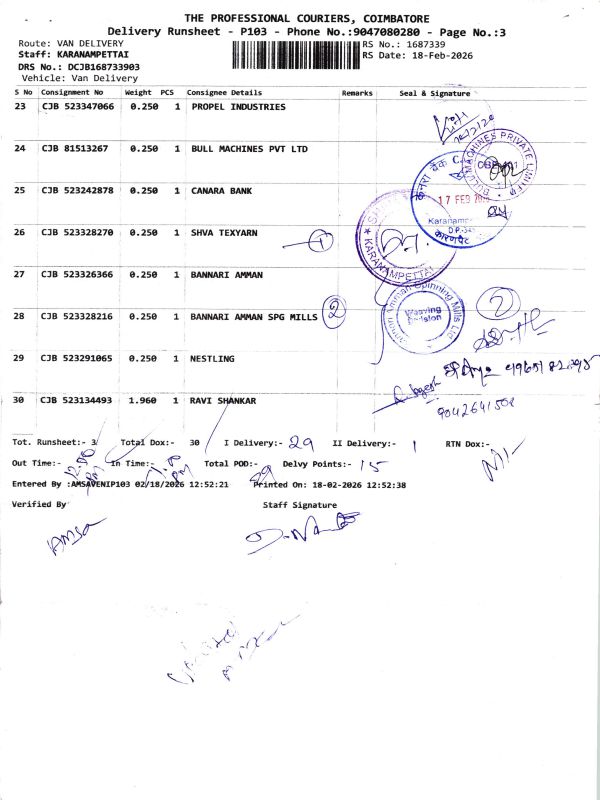 THE PROFESSIONAL COURIERS, COIMBATORE
Delivery Runsheet - P103 - Phone No.:9047080280 - Page No.:3
Route: VAN DELIVERY
RS No.: 1687339
Staff: KARANAMPETTAI
RS Date: 18-Feb-2026
DRS No.: DCJB168733903
Vehicle: Van Delivery
S No Consignment No Weight PCS Consignee Details Remarks Seal & Signature
23 CJB 523347066 0.250 1 PROPEL INDUSTRIES
24 CJB 81513267 0.250 1 BULL MACHINES PVT LTD
BULL MACHINES PRIVATE LIMITED
25 CJB 523242878 0.250 1 CANARA BANK
17 FEB
26 CJB 523328270 0.250 1 SHVA TEXYARN 1
KARANAMPETTAI
27 CJB 523326366 0.250 1 BANNARI AMMAN
28 CJB 523328216 0.250 1 BANNARI AMMAN SPG MILLS 2
Amman Spinning Mills Ltd
Weaving Division
2
29 CJB 523291065 0.250 1 NESTLING
30 CJB 523134493 1.960 1 RAVI SHANKAR
9042641508
Tot. Runsheet:- 3 Total Dox:- 30 I Delivery:- 29 II Delivery:- 1 RTN Dox:-
Out Time:- In Time:- Total POD:- 29 Delvy Points:- 15
Entered By :AMSAVENIP103 02/18/2026 12:52:21 Printed On: 18-02-2026 12:52:38
Verified By Staff Signature
AMSa